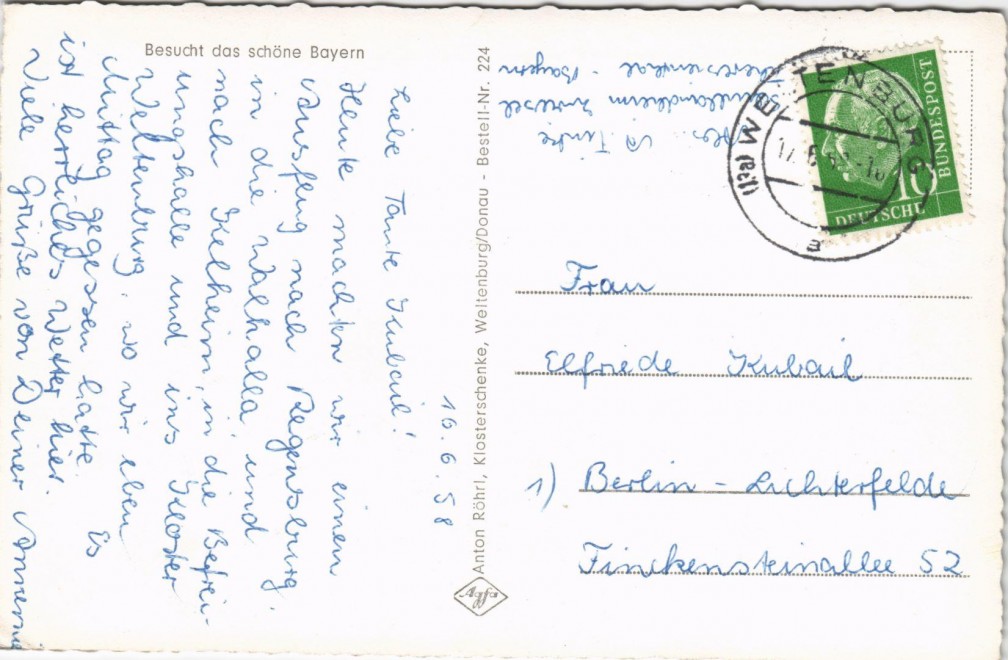 Besucht das schöne Bayern
16.6.58
Liebe Tante Kubail!
Heute machten wir einen
Ausflug nach Regensburg,
in die Walhalla und
nach Kelheim, in die Befrei-
ungshalle und ins Kloster
Weltenburg, wo wir eben
Mittag gegessen hatte. Es
ist herrliches Wetter hier.
Viele Grüße von Deiner
Anton Röhrl, Klosterschenke, Weltenburg/Donau - Bestell-Nr. 224
Agfa
Abs.
Bayern
(13a) WELTENBURG
a
DEUTSCHE
BUNDESPOST
10
Frau
Elfriede Kubail
1) Berlin - Lichterfelde
Finckensteinallee 52